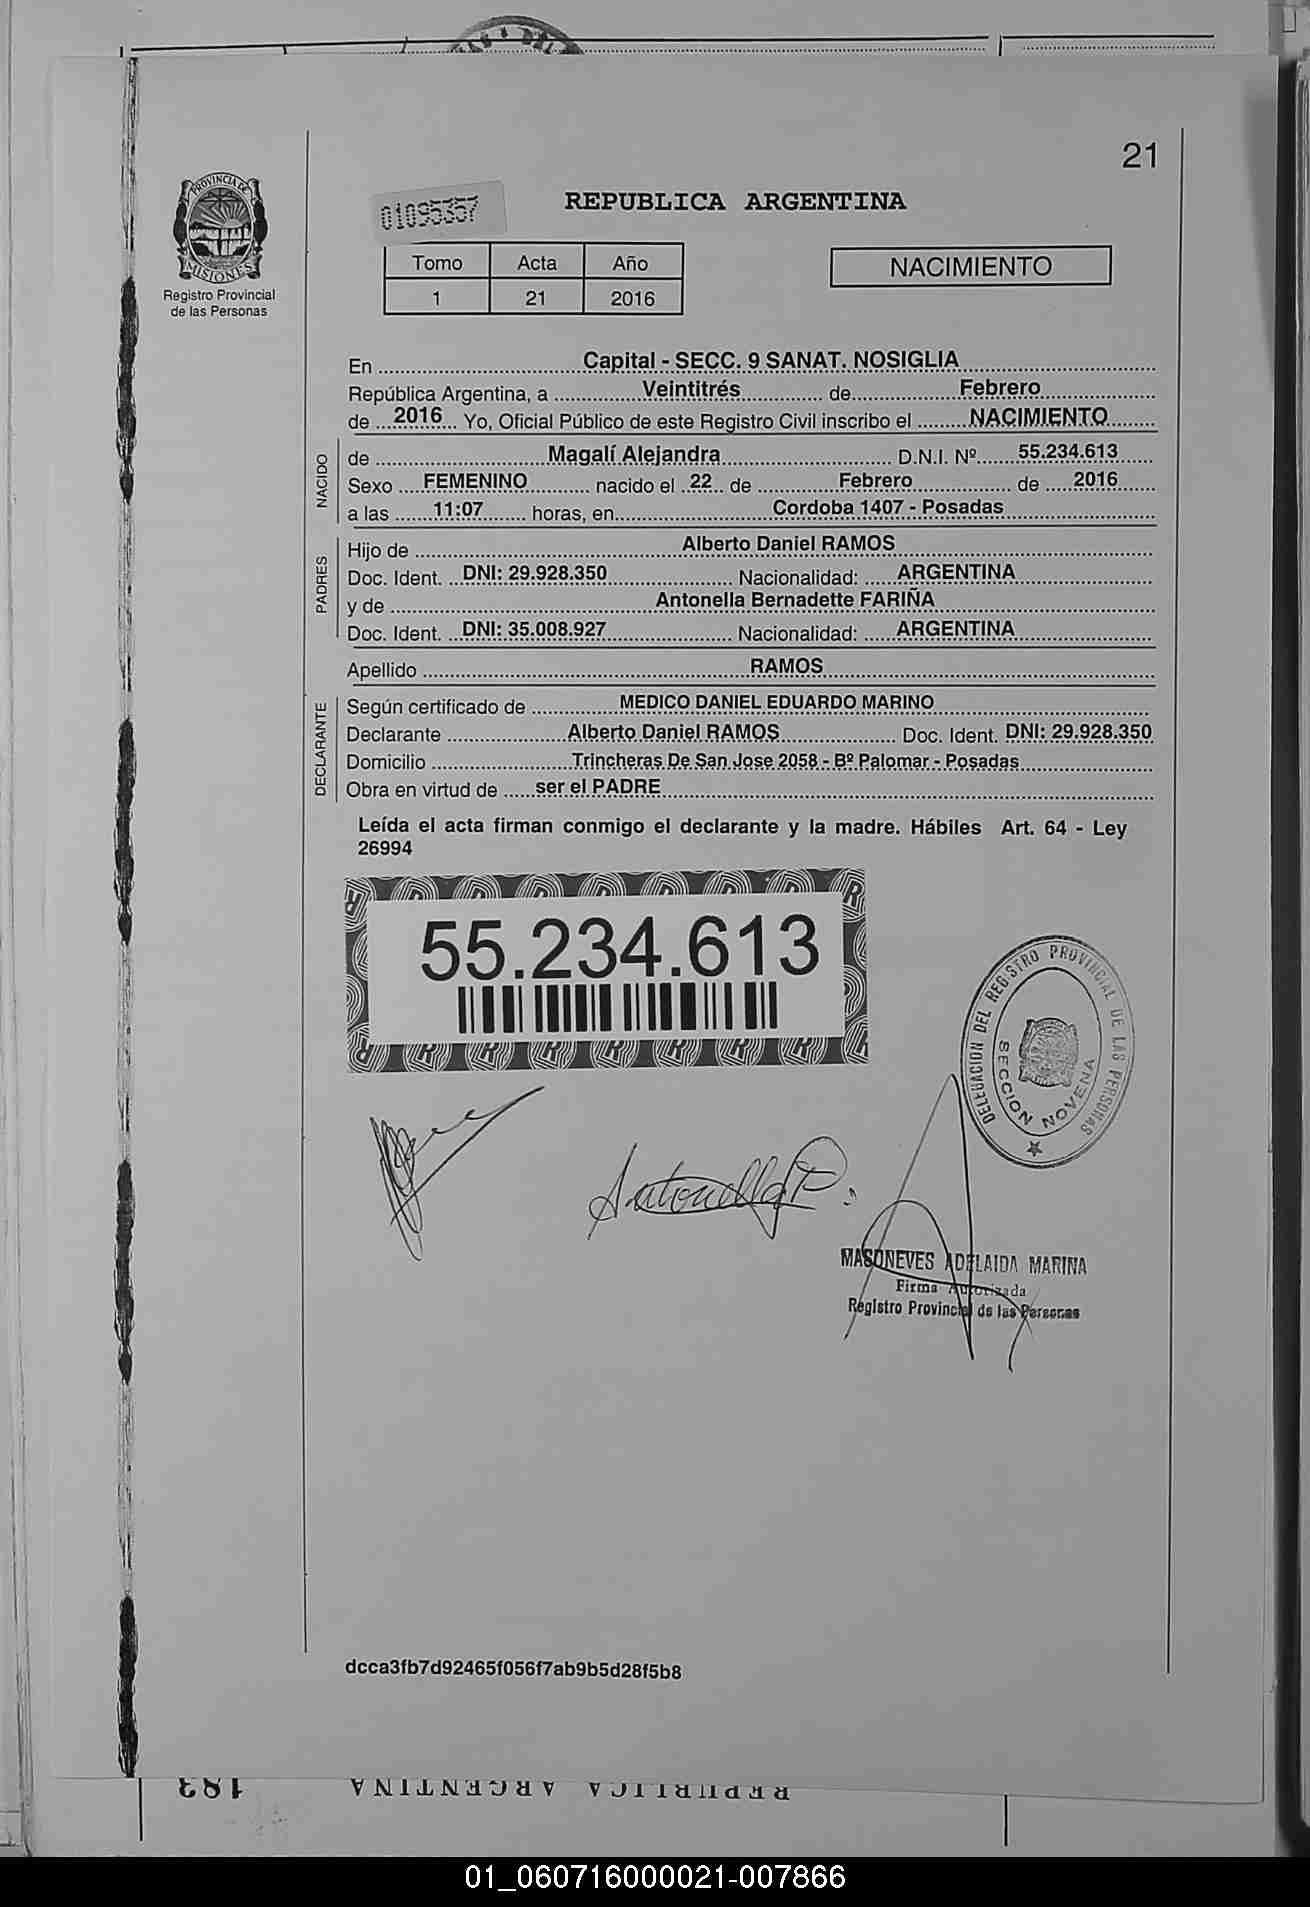 21
PROVINCIA DE
MISIONES
Registro Provincial
de las Personas
01095357
REPUBLICA ARGENTINA
Tomo Acta Año
1 21 2016
NACIMIENTO
En Capital - SECC. 9 SANAT. NOSIGLIA
República Argentina, a Veintitrés de Febrero
de 2016 Yo, Oficial Público de este Registro Civil inscribo el NACIMIENTO
NACIDO
de Magalí Alejandra D.N.I. Nº 55.234.613
Sexo FEMENINO nacido el 22 de Febrero de 2016
a las 11:07 horas, en Cordoba 1407 - Posadas
PADRES
Hijo de Alberto Daniel RAMOS
Doc. Ident. DNI: 29.928.350 Nacionalidad: ARGENTINA
y de Antonella Bernadette FARIÑA
Doc. Ident. DNI: 35.008.927 Nacionalidad: ARGENTINA
Apellido RAMOS
DECLARANTE
Según certificado de MEDICO DANIEL EDUARDO MARINO
Declarante Alberto Daniel RAMOS Doc. Ident. DNI: 29.928.350
Domicilio Trincheras De San Jose 2058 - Bº Palomar - Posadas
Obra en virtud de ser el PADRE
Leída el acta firman conmigo el declarante y la madre. Hábiles Art. 64 - Ley
26994
55.234.613
DELEGACION DEL REGISTRO PROVINCIAL DE LAS PERSONAS
SECCION NOVENA
Antonella F.
MASONEVES ADELAIDA MARINA
Firma Autorizada
Registro Provincial de las Personas
dcca3fb7d92465f056f7ab9b5d28f5b8
183 REPUBLICA ARGENTINA
01_060716000021-007866